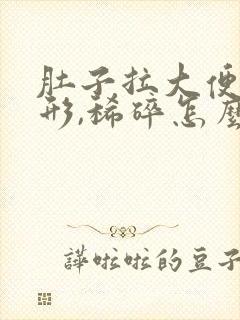 肚子拉大便
形,稀碎怎麼
譁啦啦的豆子